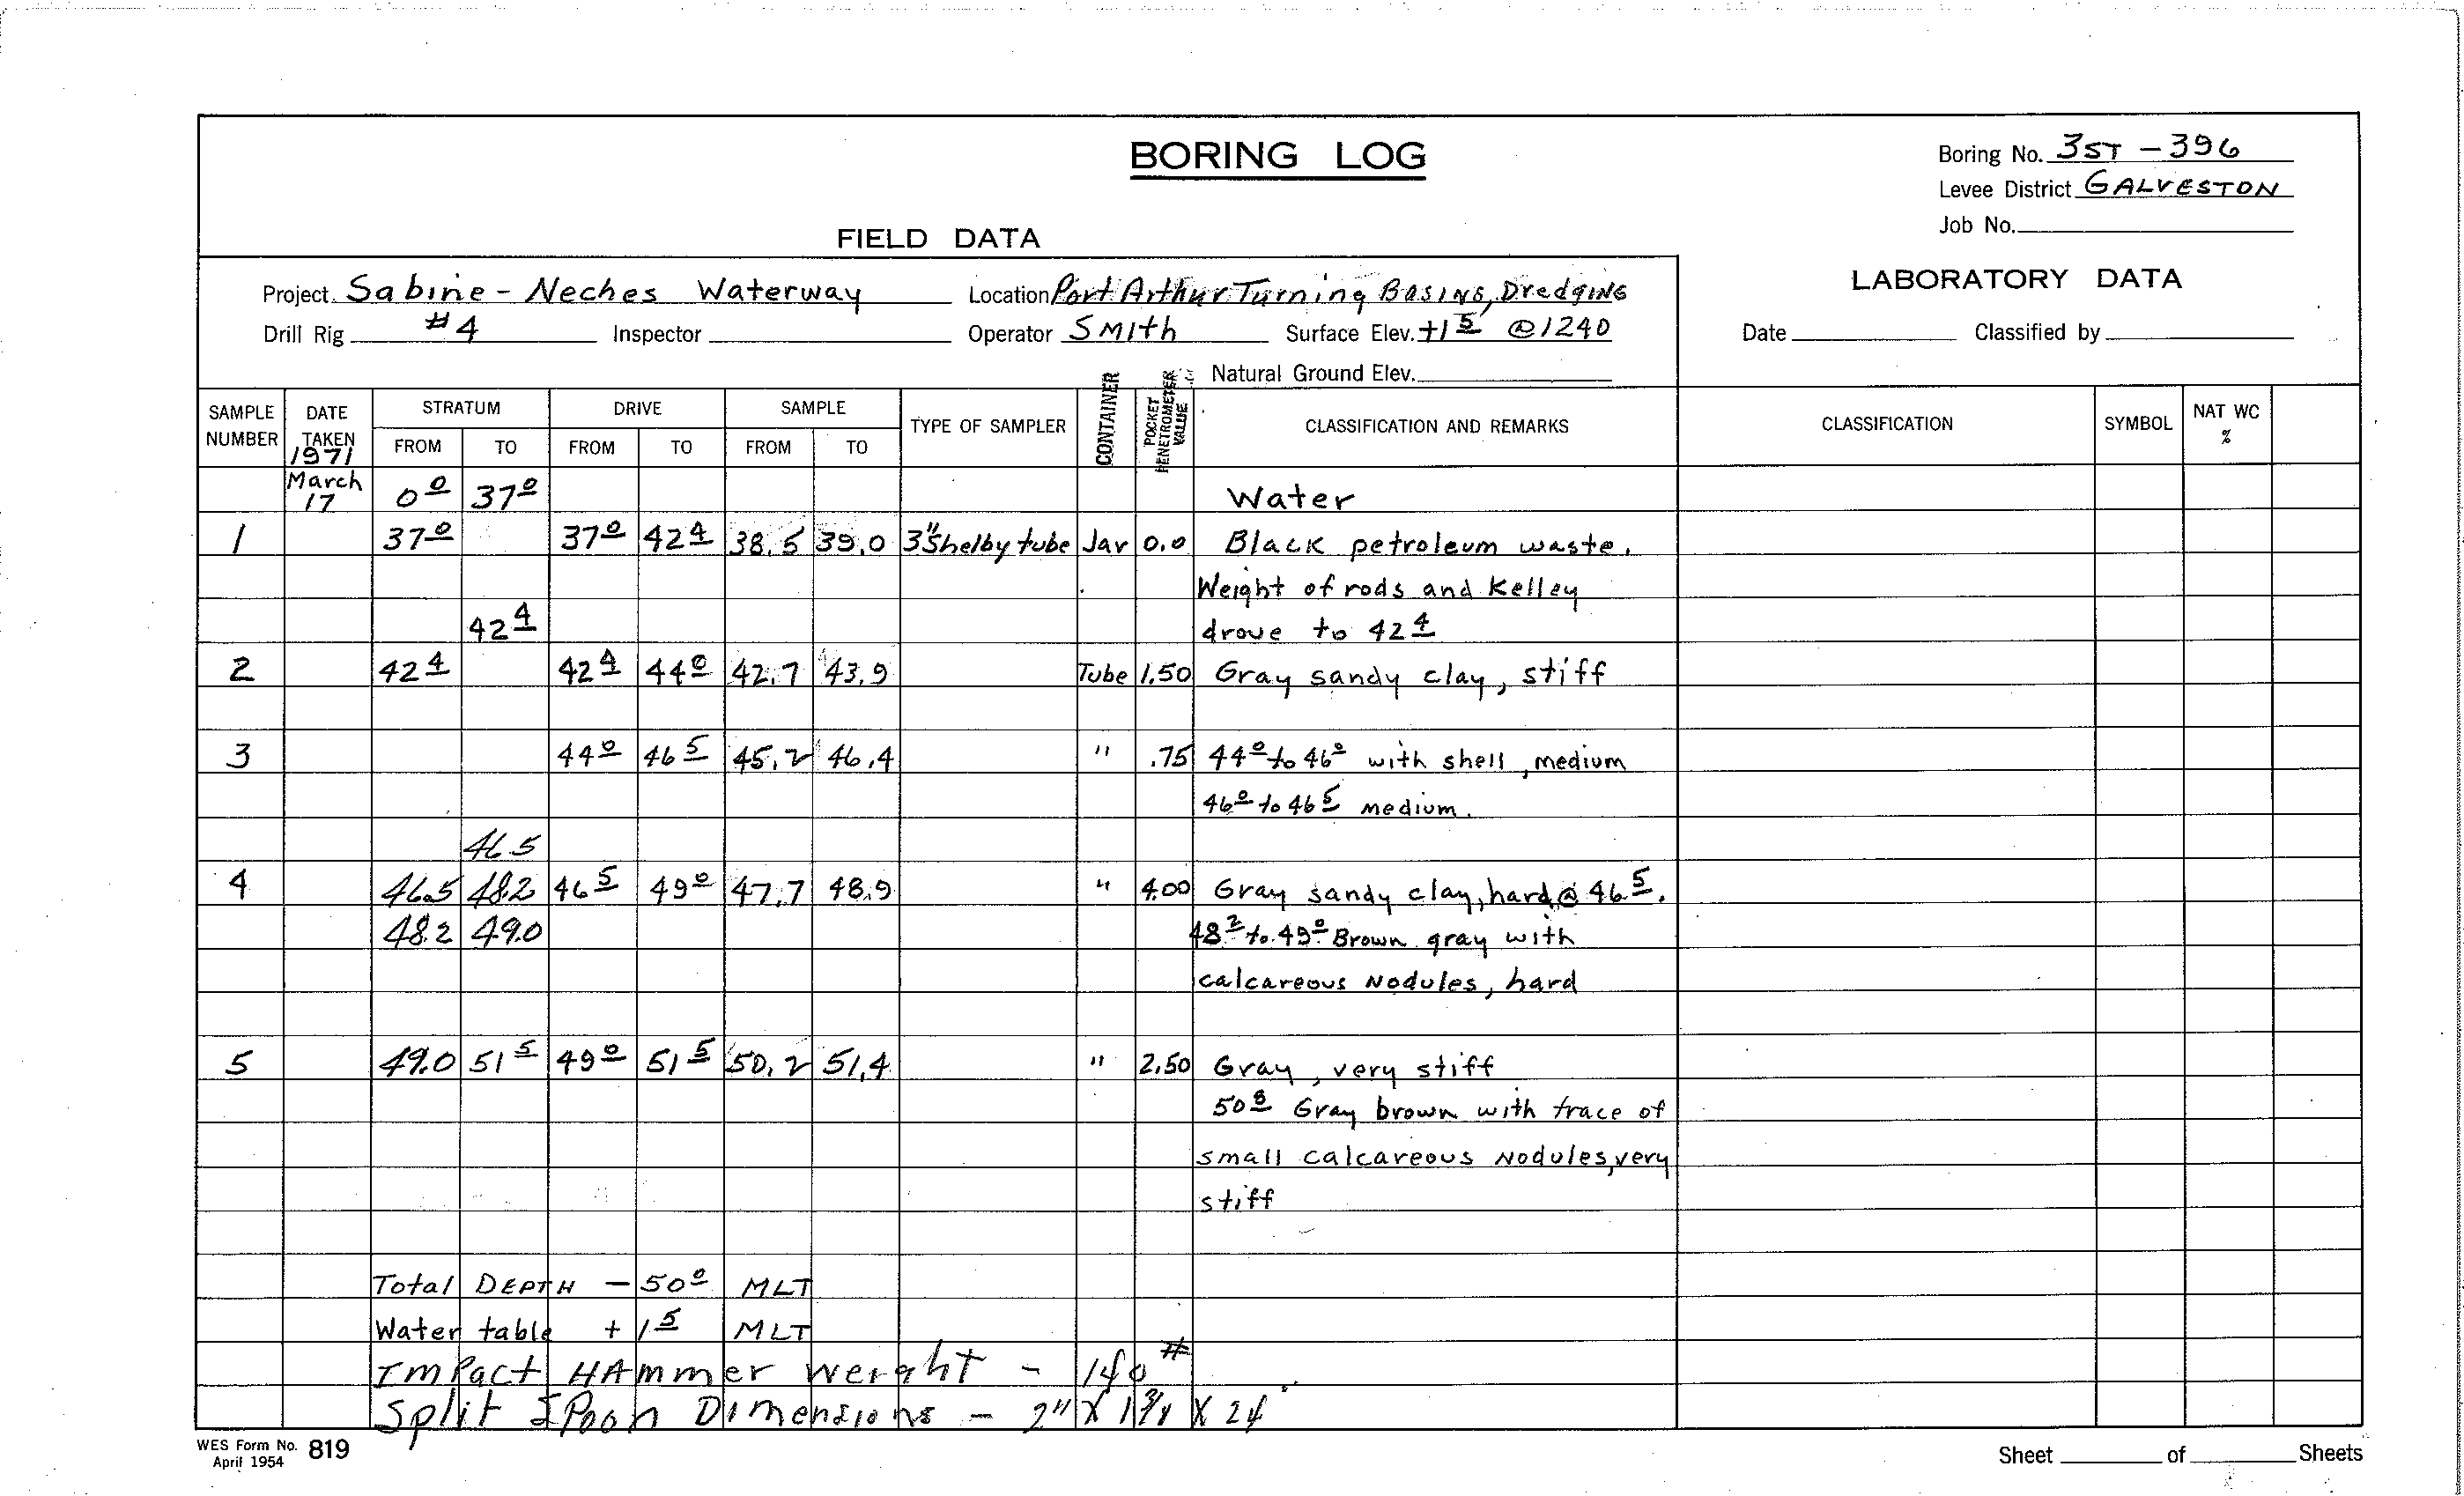 BORING LOG
Boring No. 3ST - 396
Levee District GALVESTON
Job No.
FIELD DATA
LABORATORY DATA
Project Sabine - Neches Waterway Location Port Arthur Turning Basins, Dredging
Drill Rig #4 Inspector Operator Smith Surface Elev. +1 5 @1240 Date Classified by
Natural Ground Elev.
SAMPLE NUMBER DATE TAKEN 1971 STRATUM FROM TO DRIVE FROM TO SAMPLE FROM TO TYPE OF SAMPLER CONTAINER POCKET PENETROMETER VALUE CLASSIFICATION AND REMARKS CLASSIFICATION SYMBOL NAT WC %
March 17 0 0 37 0 Water
1 37 0 37 0 42 4 38.5 39.0 3" Shelby tube Jar 0.0 Black petroleum waste.
Weight of rods and Kelley
42 4 drove to 42 4
2 42 4 42 4 44 0 42.7 43.9 Tube 1.50 Gray sandy clay, stiff
3 44 0 46 5 45.2 46.4 " .75 44 0 to 46 0 with shell, medium
46 0 to 46 5 medium.
46.5
4 46.5 48.2 46 5 49 0 47.7 48.9 " 4.00 Gray sandy clay, hard @ 46 5.
48.2 49.0 48 2 to 49 0 Brown gray with
calcareous Nodules, hard
5 49.0 51 5 49 0 51 5 50.2 51.4 " 2.50 Gray, very stiff
50 8 Gray brown with trace of
small calcareous Nodules, very
stiff
Total DEPTH - 50 0 MLT
Water table + 1 5 MLT
Impact Hammer weight - 140 #
Split Spoon Dimensions - 2" X 1 3/8 X 24"
WES Form No. 819
April 1954
Sheet of Sheets